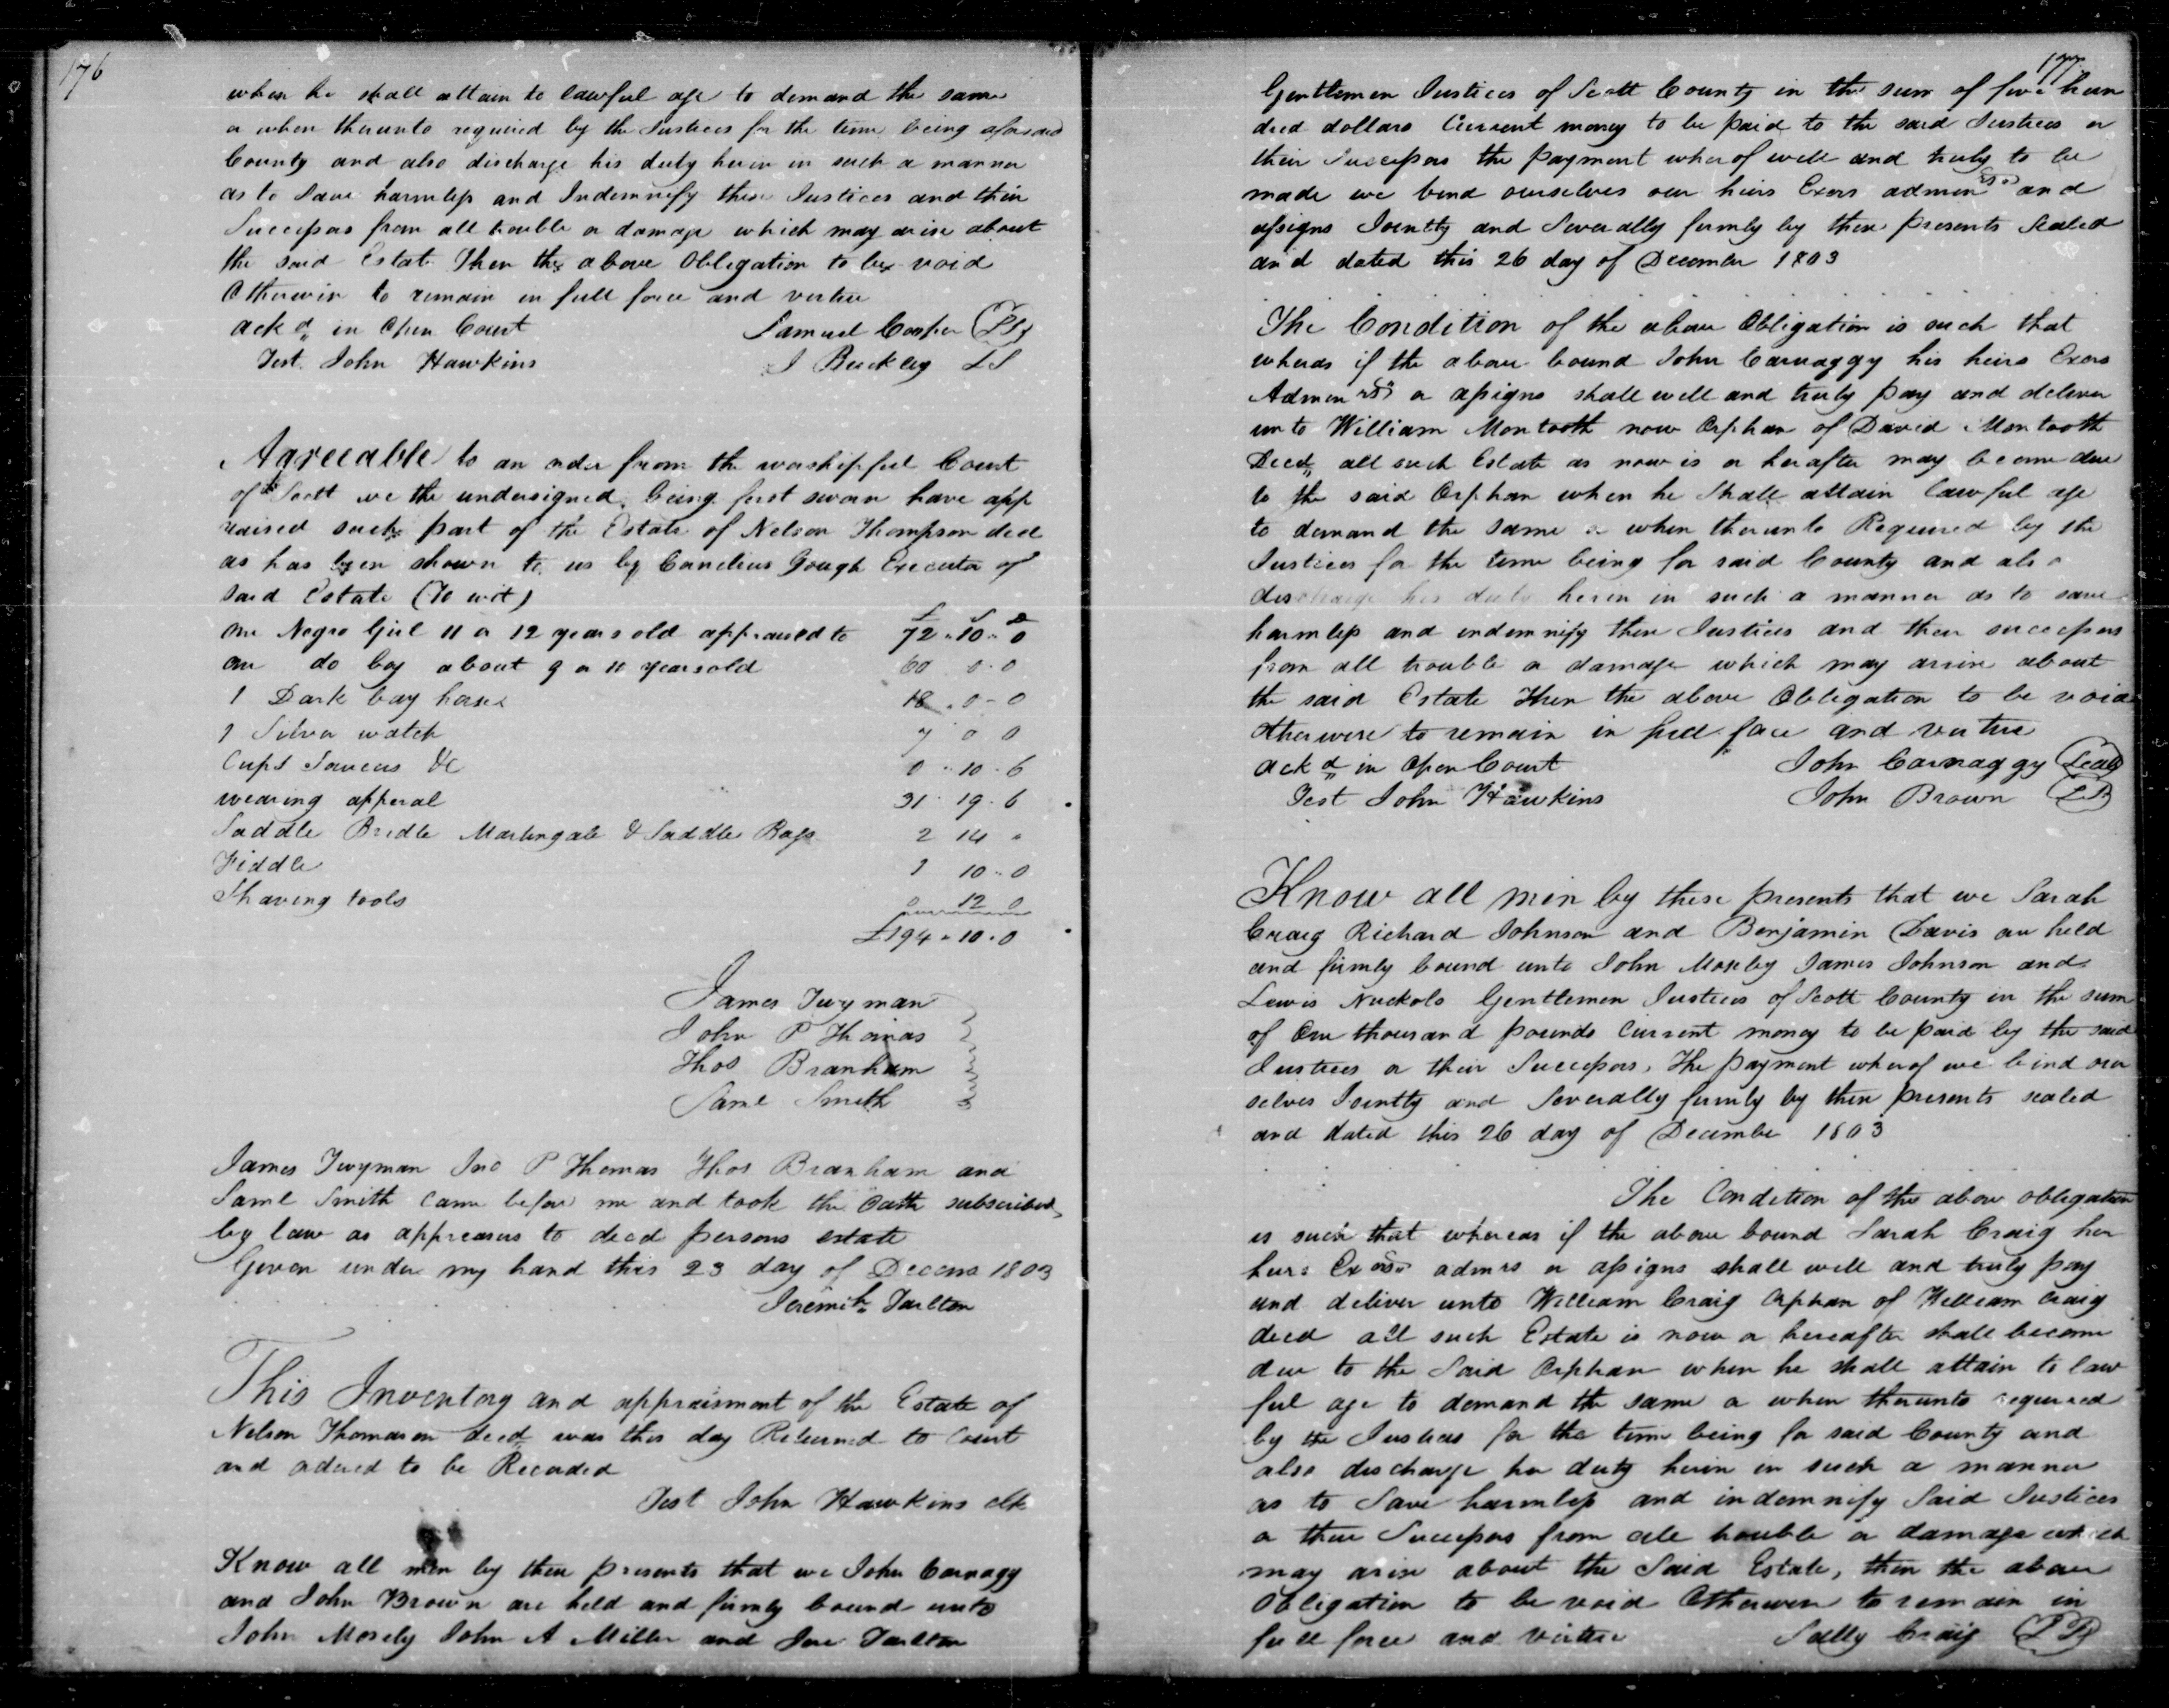 176
when he shall attain to lawful age to demand the same
or when thereunto required by the Justices for the time being aforesaid
County and also discharge his duty herein in such a manner
as to Save harmless and Indemnify these Justices and their
Successors from all trouble or damage which may arise about
the said Estate Then the above Obligation to be void
Otherwise to remain in full force and virtue
ackd in Open Court Samuel Cooper LS
Test. John Hawkins J Buckley LS
Agreeable to an order from the worshipful Court
of Scott we the undersigned being first sworn have app
raised such part of the Estate of Nelson Thompson decd
as has been shown to us by Cornelius Gough Executor of
said Estate (To wit) £ S D
one Negro Girl 11 or 12 years old appraised to 72 - 10 - 0
one do boy about 9 or 11 years old 60 0 - 0
1 Dark bay horse 18 . 0 - 0
1 Silver watch 7 0 0
Cups Saucers &C 0 - 10 - 6
wearing apperal 31 - 19 - 6
Saddle Bridle Martingale & Saddle Bags 2 14 "
Fiddle 1 10 - 0
Shaving tools 0 12 0
£194 - 10 - 0
James Twyman
John P Thomas
Thos Branham
Saml Smith
James Twyman Jno P Thomas Thos Branham and
Saml Smith came before me and took the Oath subscribed
by law as appreasers to decd persons estate
Given under my hand this 23 day of Decem 1803
Jeremih Tarlton
This Inventory and appraisment of the Estate of
Nelson Thomason decd was this day Returned to Court
and ordered to be Recorded
Test John Hawkins clk
Know all men by these presents that we John Carnagy
and John Brown are held and firmly bound unto
John Mosely John A Miller and Jere Tarlton
177
Gentlemen Justices of Scott County in the sum of five hun
dred dollars Current money to be paid to the said Justices or
their Successors the payment wherof well and truly to be
made we bind ourselves our heirs Exors admors and
assigns Jointly and Severally firmly by these presents Sealed
and dated this 26 day of December 1803
The Condition of the above Obligation is such that
wheras if the above bound John Carnaggy his heirs Exors
Admenrs or assigns shall well and truly pay and deliver
unto William Montooth now Orphan of David Montooth
Decd all such Estate as now is or herafter may become due
to the said Orphan when he Shall attain lawful age
to demand the same or when thereunto Required by the
Justices for the time being for said County and also
discharge his duty herein in such a manner as to save
harmless and indemnify these Justices and their successors
from all trouble or damage which may arise about
the said Estate Then the above Obligation to be void
otherwise to remain in full force and virtue
ackd in Open Court John Carnaggy Seal
Test John Hawkins John Brown LS
Know all men by these presents that we Sarah
Craig Richard Johnson and Benjamin Davis are held
and firmly bound unto John Mosby James Johnson and
Lewis Nuckols Gentlemen Justices of Scott County in the sum
of One thousand pounds Current money to be paid by the said
Justices or their Successors, The payment wherof we bind our
selves Jointly and Severally firmly by these presents sealed
and dated this 26 day of December 1803
The Condition of the above obligation
is such that whereas if the above bound Sarah Craig her
heirs Exors admrs or assigns shall well and truly pay
and deliver unto William Craig Orphan of William Craig
decd all such Estate is now or hereafter shall become
due to the Said Orphan when he shall attain to law
ful age to demand the same or when therunto required
by the Justices for the time being for said County and
also discharge her duty herin in such a manner
as to Save harmless and indemnify Said Justices
or their Successors from all trouble or damage which
may arise about the Said Estate, then the above
Obligation to be void Otherwise to remain in
full force and virtue Sally Craig LS